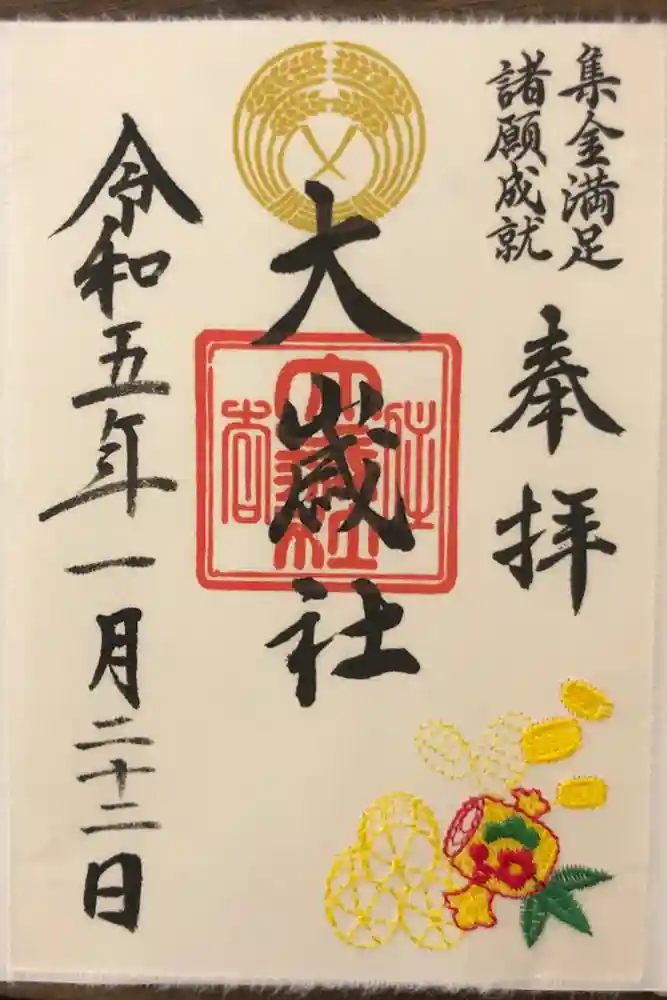 集金満足
諸願成就
奉拝
大歳社
住吉
大歳社
令和五年一月二十二日